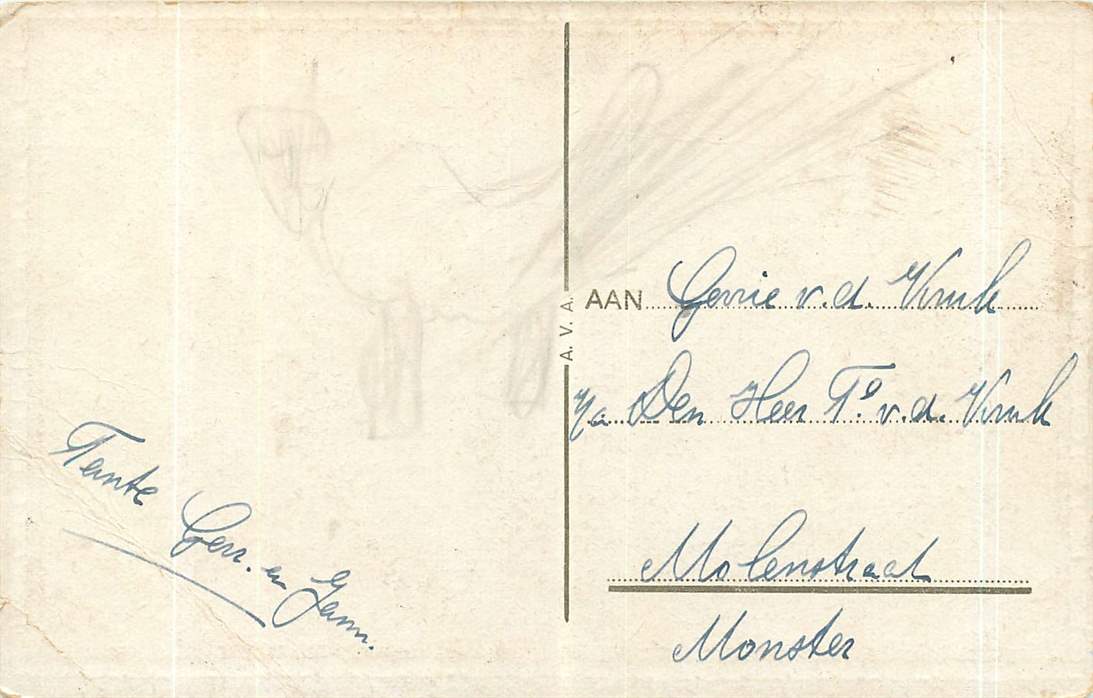 Tante
Gerr. en Jann.
A. V. A.
AAN Gerrie v.d. Kruk
p/a Den Heer Ts v.d. Kruk
Molenstraat
Monster